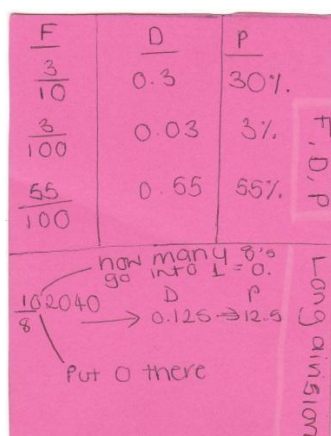 F D P
3/10 0.3 30%.
3/100 0.03 3%.
55/100 0.55 55%.
F, D, P
how many 8's
go into 1 = 0.
D P
10 2040 / 8 → 0.125 → 12.5
Put 0 there
Long division